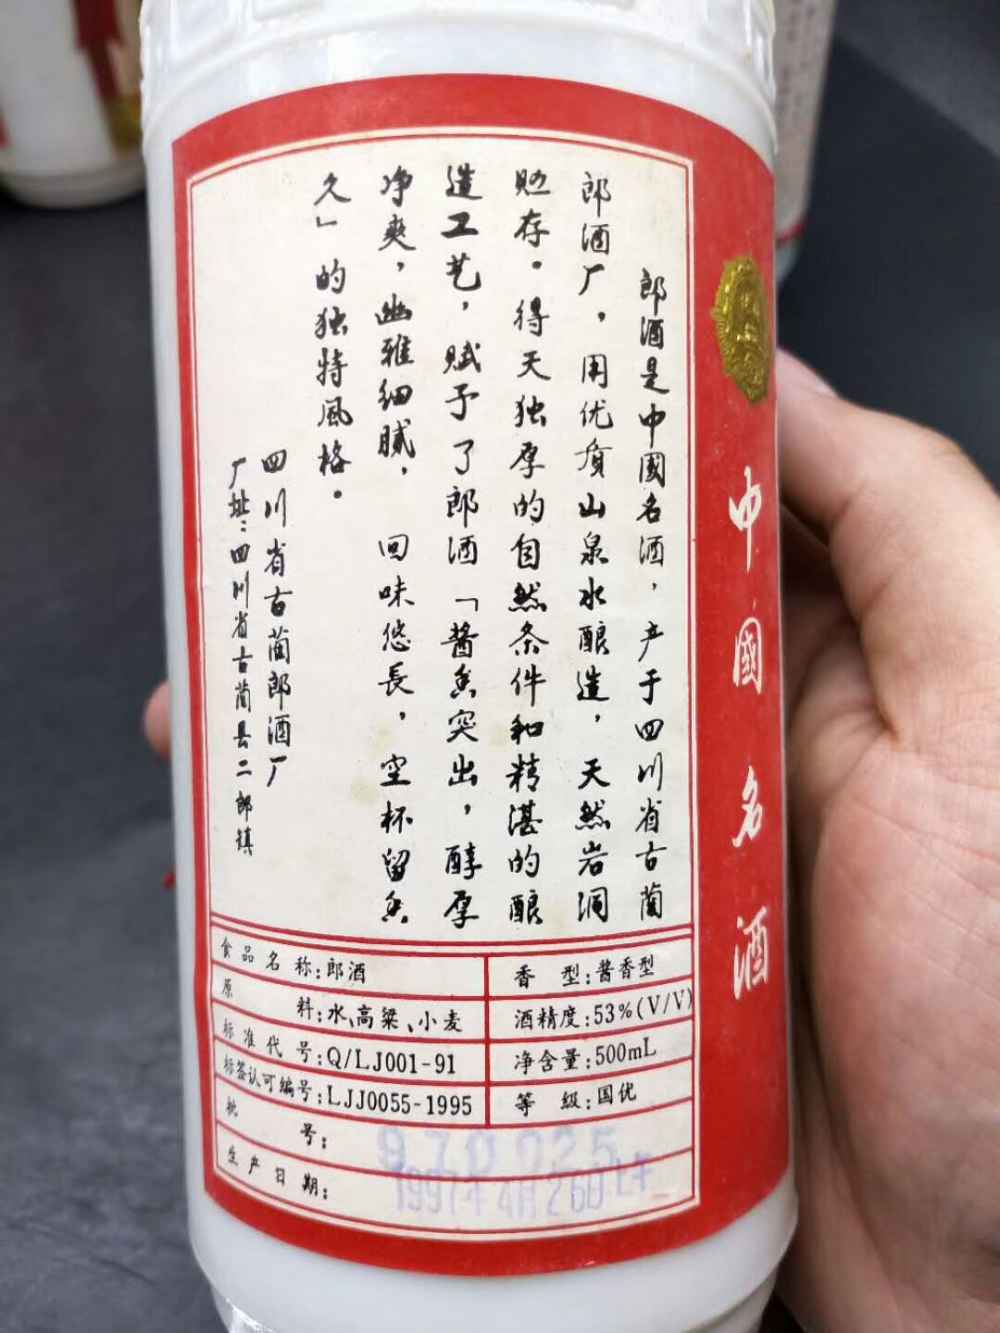 中國名酒
郎酒是中國名酒，产于四川省古蔺
郎酒厂，用优质山泉水酿造，天然岩洞
贮存。得天独厚的自然条件和精湛的酿
造工艺，赋予了郎酒「酱香突出，醇厚
净爽，幽雅细腻，回味悠長，空杯留香
久」的独特風格。
四川省古蔺郎酒厂
厂址：四川省古蔺县二郎镇
食品名称：郎酒
香型：酱香型
原料：水、高粱、小麦
酒精度：53%(V/V)
标准代号：Q/LJ001-91
净含量：500mL
标签认可编号：LJJ0055-1995
等级：国优
批号：
生产日期：1997年4月26日